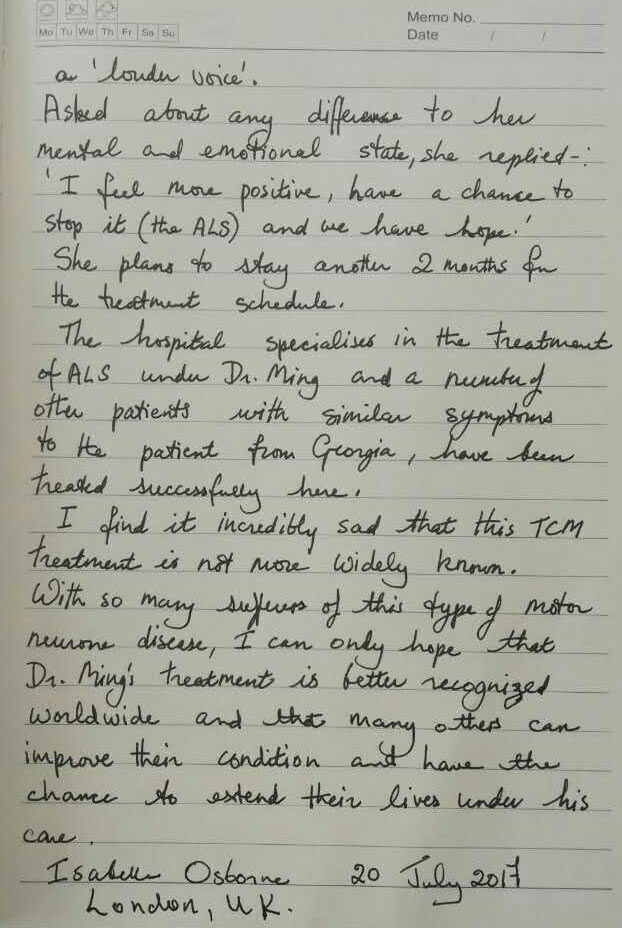 Memo No.
Mo Tu We Th Fr Sa Su
Date / /
a 'louder voice'.
Asked about any difference to her
mental and emotional state, she replied-:
'I feel more positive, have a chance to
stop it (the ALS) and we have hope.'
She plans to stay another 2 months for
the treatment schedule.
The hospital specialises in the treatment
of ALS under Dr. Ming and a number of
other patients with similar symptoms
to the patient from Georgia, have been
treated successfully here.
I find it incredibly sad that this TCM
treatment is not more widely known.
With so many sufferers of this type of motor
neurone disease, I can only hope that
Dr. Ming's treatment is better recognized
worldwide and that many others can
improve their condition and have the
chance to extend their lives under his
care.
Isabelle Osborne 20 July 2017
London, UK.